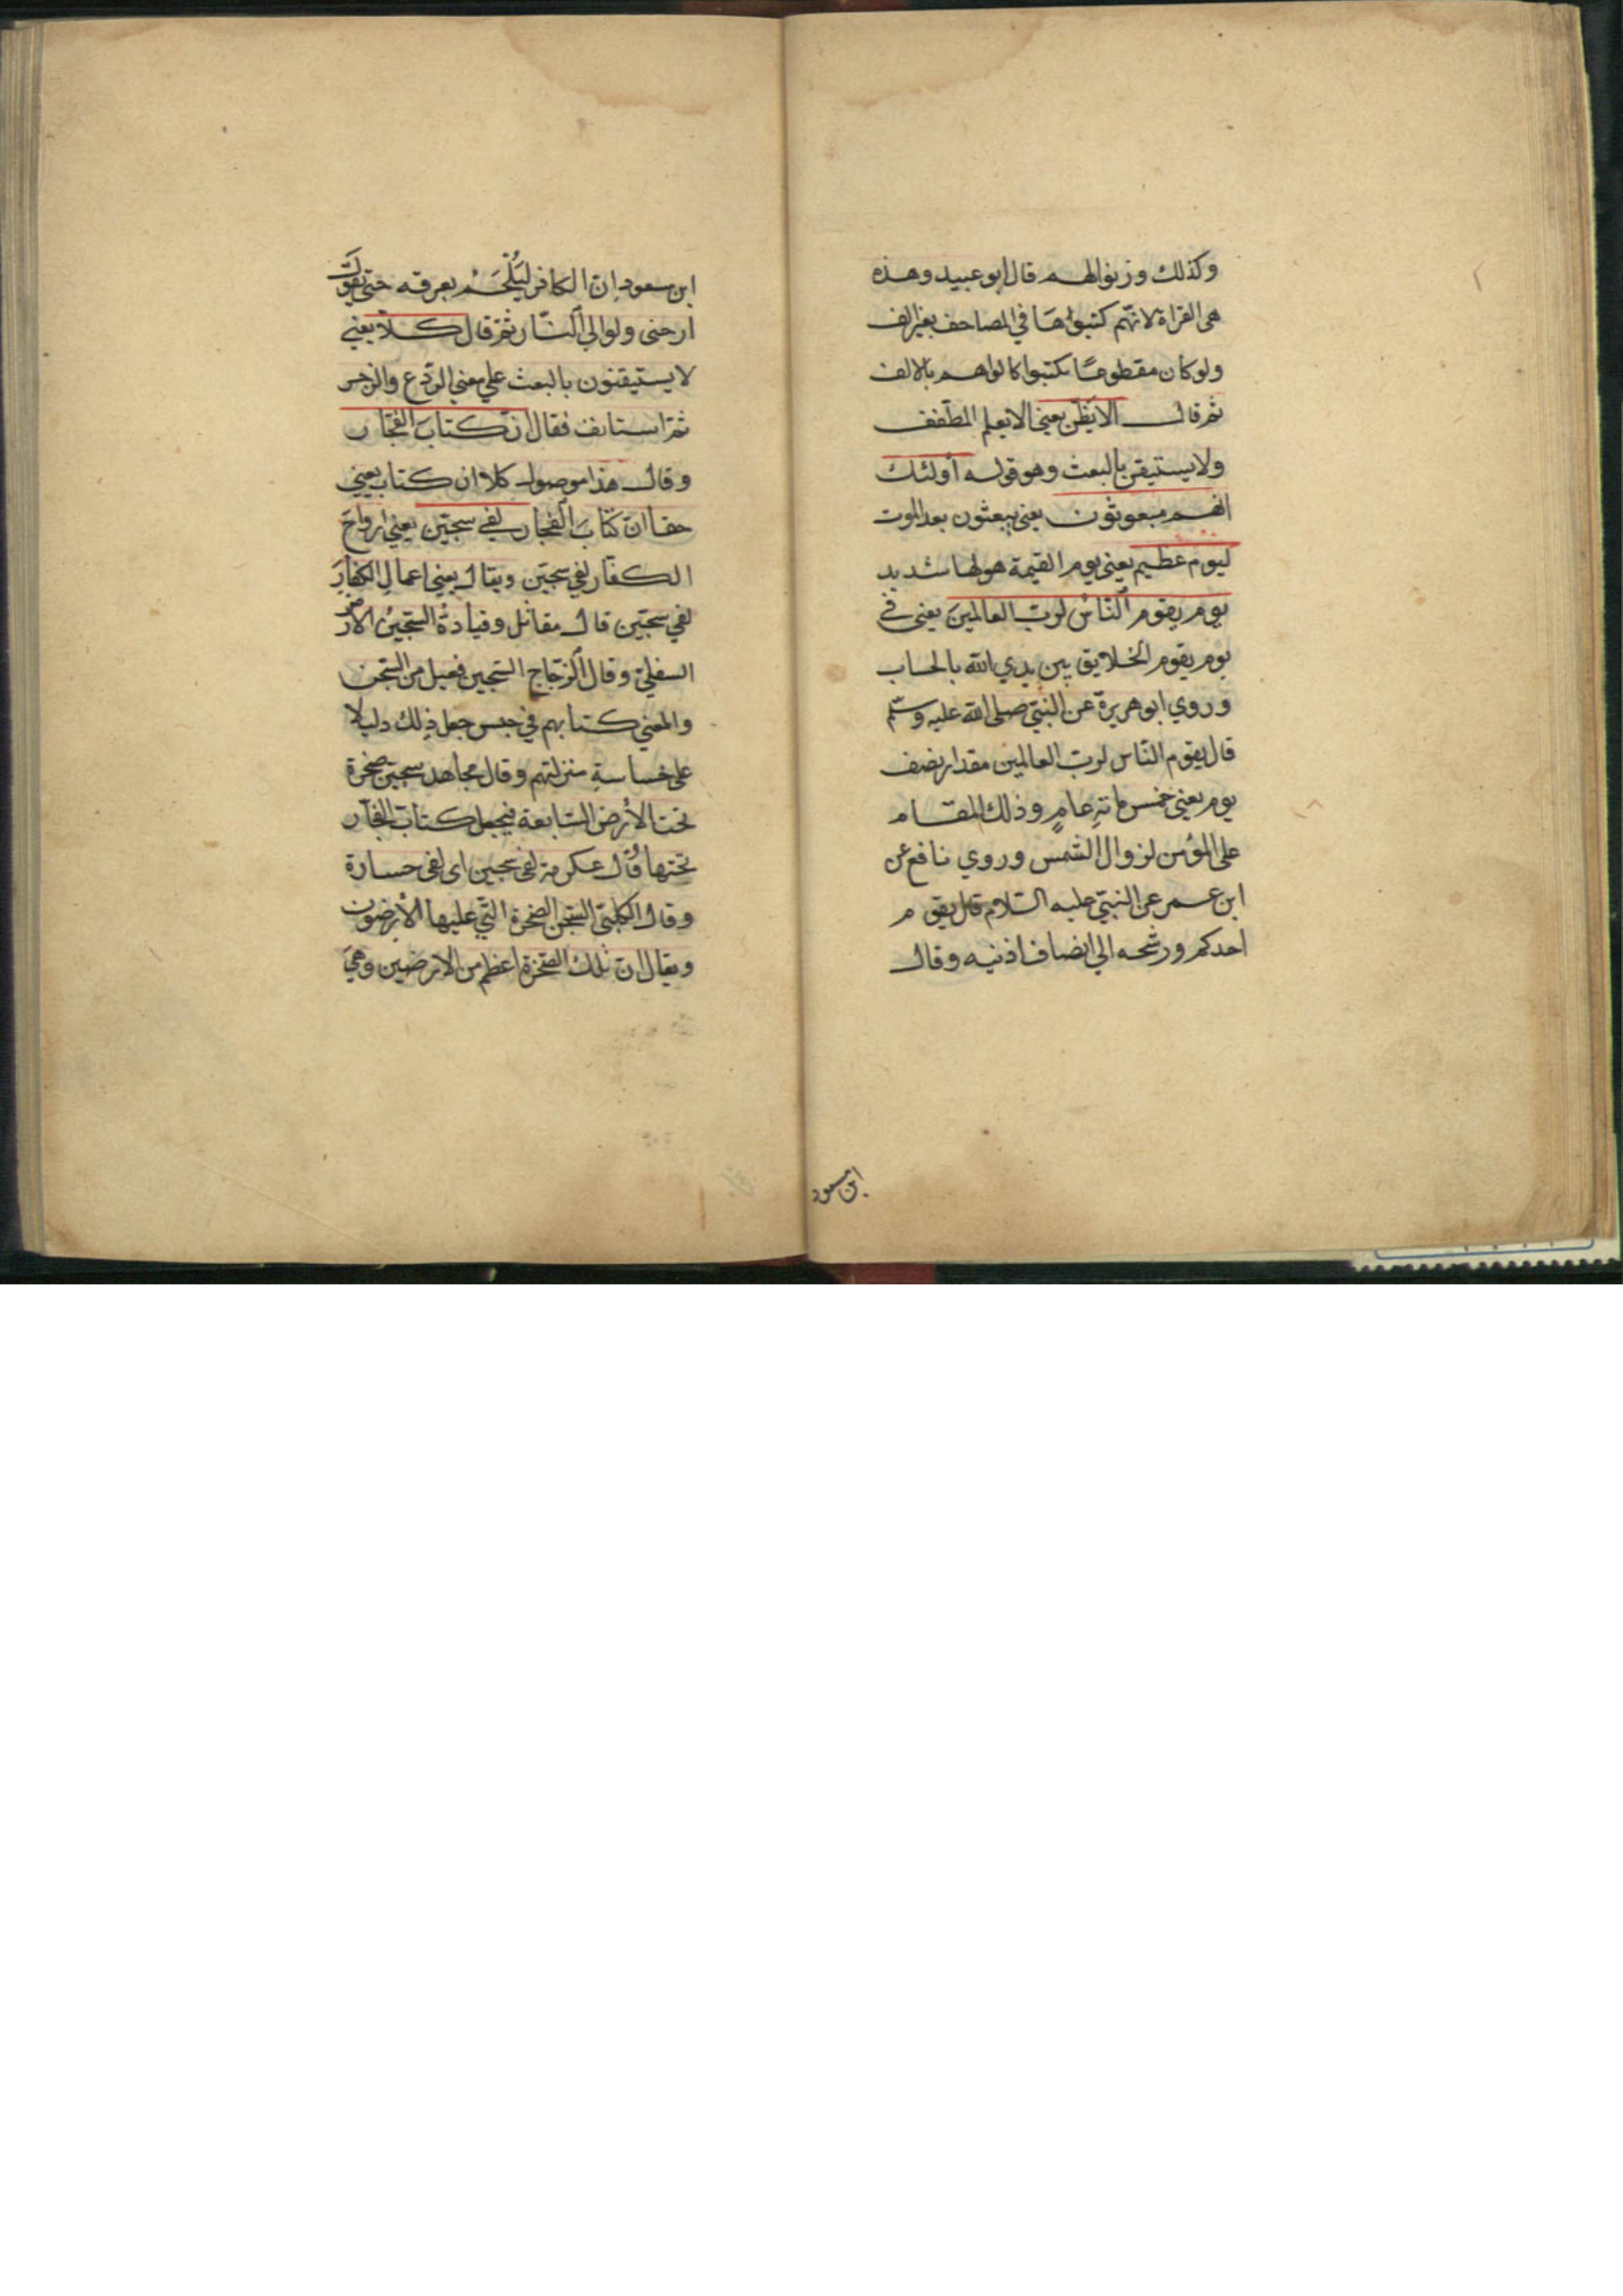 وكذلك وزنوالهم قال ابو عبيد وهذه
هى القراة لانهّم كتبوُاهَا في المصاحف بغير الف
ولوكان مقطوعًا لكتبوا كالواهم بالالف
ثم قال الا يَظُنّ يعنى الا يعلم المطّفف
ولا يستيقن بالبعث وهو قوله أولئك
انهم مبعوثون يعنى يبعثون بعد الموت
ليوم عظيم يعنى يوم القيمة هولها شديد
يوم يقوم النّاسُ لربّ العالمينَ يعنى في
يوم يقوم الخلايق بين يدي الله بالحساب
وروي ابو هريرة عن النبّي صلى الله عليه وسلّم
قال يقوم النّاس لربّ العالمين مقدار نصف
يوم يعنى خمس مائةِ عامٍ وذلك المقام
على المؤمن لزوال الشمس وروي نافع عن
ابن عمر عن النبّي عليه السّلام قال يقوم
احدكم ورشحه الي انصاف اذنيه وقال
ابن مسعود
ابن مسعود انّ الكافر ليُلْجَمُ بعرقه حتى يقولَ
ارحنى ولو الي النّار ثمّ قال كلاّ يعني
لا يستيقنون بالبعث علي معني الرّدع والزجر
ثمّ استانف فقال انّ كتابَ الفجّار
وقال هذا موصول كلا ان كتاب يعني
حقا انّ كتابَ الفجار لفي سجّين يعني ارواحَ
الكفّار لفي سجّين ويقال يعني اعمال الكفارِ
لفي سجّين قال مقاتل وقتادةُ السّجّينُ الأرض
السفليٰ وقال الزّجّاج السّجين فعيل من السّجن
والمعني كتابهم في حبس جعل ذلك دليلا
على خساسةِ منزلتهم وقال مجاهد سجين صخرة
تحت الأرض السّابعة فيجعل كتابَ الفجّار
تحتها وقال عكرمة لفي سجين اى لفى خسارة
وقال الكلبّي السّجن الصخرة التّي عليها الأرضون
ويقال ان تلك الصّخرة اعظم من الارضين وهيَ